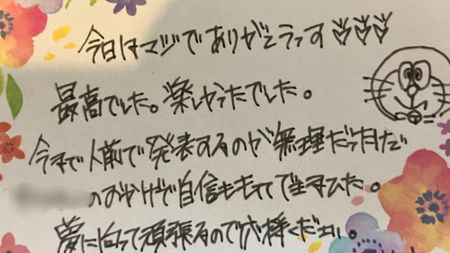 今日はマジでありがとうっす
最高でした。楽しかったでした。
今まで人前で発表するのが無理だったけど
のおかげで自信をもってできました。
夢に向って頑張るので応援ください。